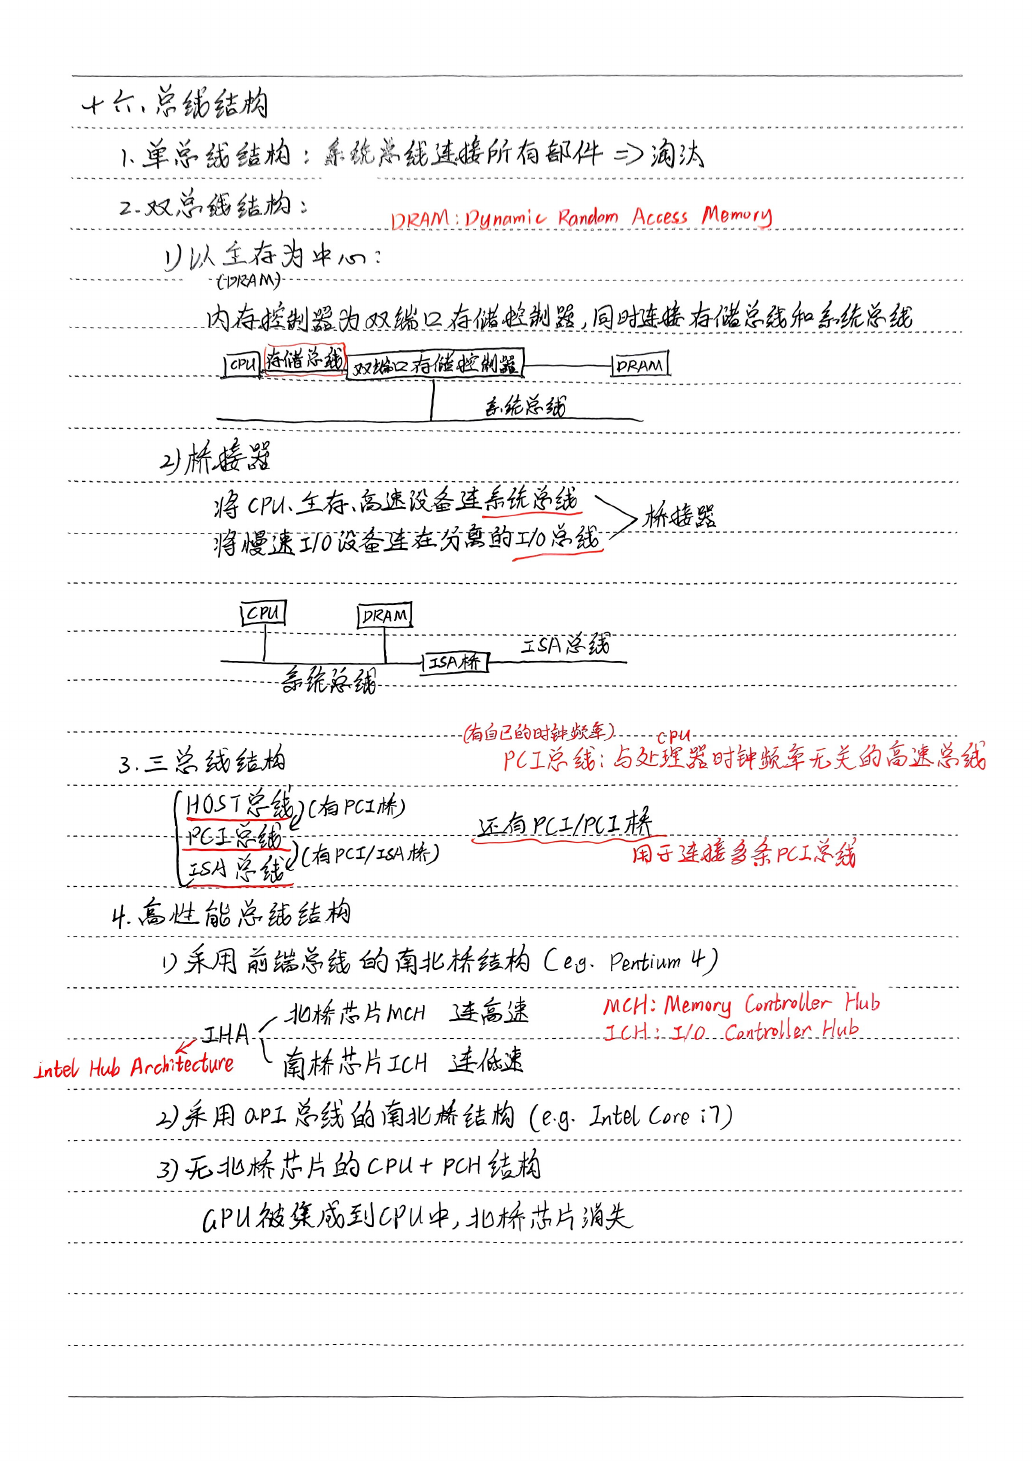 十六、总线结构
1.单总线结构：系统总线连接所有部件 => 淘汰
2.双总线结构：
DRAM：Dynamic Random Access Memory
1)以主存为中心：
(DRAM)
内存控制器为双端口存储控制器,同时连接存储总线和系统总线
CPU 存储总线 双端口存储控制器 DRAM
系统总线
2)桥接器
将CPU、主存、高速设备连系统总线
桥接器
将慢速I/O设备连在分离的I/O总线
CPU DRAM
ISA总线
ISA桥
系统总线
(有自己的时钟频率) CPU
3.三总线结构 PCI总线：与处理器时钟频率无关的高速总线
HOST总线 (有PCI桥)
PCI总线 还有PCI/PCI桥
(有PCI/ISA桥) 用于连接多条PCI总线
ISA总线
4.高性能总线结构
1)采用前端总线的南北桥结构 (e.g. Pentium 4)
北桥芯片MCH 连高速 MCH：Memory Controller Hub
IHA ICH：I/O Controller Hub
Intel Hub Architecture 南桥芯片ICH 连低速
2)采用QPI总线的南北桥结构 (e.g. Intel Core i7)
3)无北桥芯片的CPU+PCH结构
GPU被集成到CPU中,北桥芯片消失